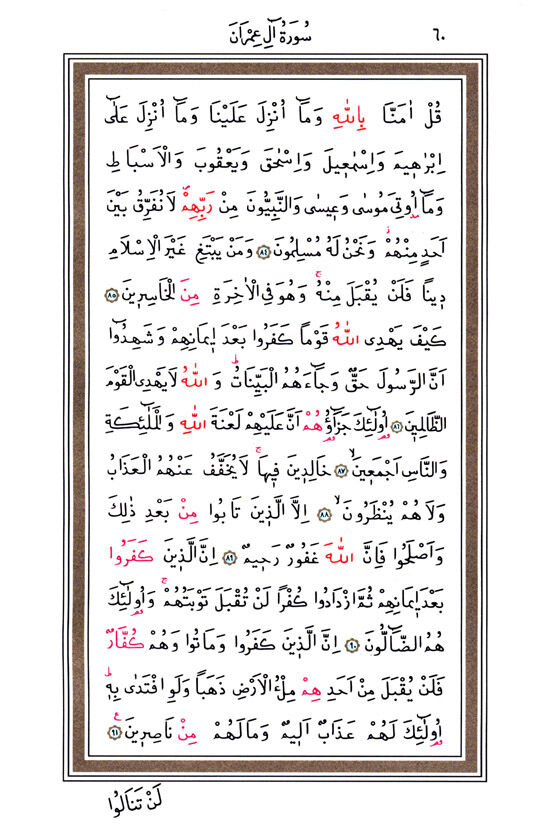 ٦٠
سُورَةُ اٰلِ عِمْرَانَ
قُلْ اٰمَنَّا بِاللّٰهِ وَمَٓا اُنْزِلَ عَلَيْنَا وَمَٓا اُنْزِلَ عَلٰٓى
اِبْرٰه۪يمَ وَاِسْمٰع۪يلَ وَاِسْحٰقَ وَيَعْقُوبَ وَالْاَسْبَاطِ
وَمَٓا اُو۫تِيَ مُوسٰى وَع۪يسٰى وَالنَّبِيُّونَ مِنْ رَبِّهِمْۖ لَا نُفَرِّقُ بَيْنَ
اَحَدٍ مِنْهُمْۘ وَنَحْنُ لَهُ مُسْلِمُونَ ﴿٨٤﴾ وَمَنْ يَبْتَغِ غَيْرَ الْاِسْلَامِ
د۪ينًا فَلَنْ يُقْبَلَ مِنْهُۚ وَهُوَ فِي الْاٰخِرَةِ مِنَ الْخَاسِر۪ينَ ﴿٨٥﴾
كَيْفَ يَهْدِي اللّٰهُ قَوْمًا كَفَرُوا بَعْدَ ا۪يمَانِهِمْ وَشَهِدُٓوا
اَنَّ الرَّسُولَ حَقٌّ وَجَٓاءَهُمُ الْبَيِّنَاتُۜ وَاللّٰهُ لَا يَهْدِي الْقَوْمَ
الظَّالِم۪ينَ ﴿٨٦﴾ اُو۬لٰٓئِكَ جَزَٓاؤُ۬هُمْ اَنَّ عَلَيْهِمْ لَعْنَةَ اللّٰهِ وَالْمَلٰٓئِكَةِ
وَالنَّاسِ اَجْمَع۪ينَۙ ﴿٨٧﴾ خَالِد۪ينَ ف۪يهَاۚ لَا يُخَفَّفُ عَنْهُمُ الْعَذَابُ
وَلَا هُمْ يُنْظَرُونَۙ ﴿٨٨﴾ اِلَّا الَّذ۪ينَ تَابُوا مِنْ بَعْدِ ذٰلِكَ
وَاَصْلَحُوا فَاِنَّ اللّٰهَ غَفُورٌ رَح۪يمٌ ﴿٨٩﴾ اِنَّ الَّذ۪ينَ كَفَرُوا
بَعْدَ ا۪يمَانِهِمْ ثُمَّ ازْدَادُوا كُفْرًا لَنْ تُقْبَلَ تَوْبَتُهُمْۚ وَاُو۬لٰٓئِكَ
هُمُ الضَّٓالُّونَ ﴿٩٠﴾ اِنَّ الَّذ۪ينَ كَفَرُوا وَمَاتُوا وَهُمْ كُفَّارٌ
فَلَنْ يُقْبَلَ مِنْ اَحَدِهِمْ مِلْءُ الْاَرْضِ ذَهَبًا وَلَوِ افْتَدٰى بِه۪ۜ
اُو۬لٰٓئِكَ لَهُمْ عَذَابٌ اَل۪يمٌ وَمَا لَهُمْ مِنْ نَاصِر۪ينَ۟ ﴿٩١﴾
لَنْ تَنَالُوا